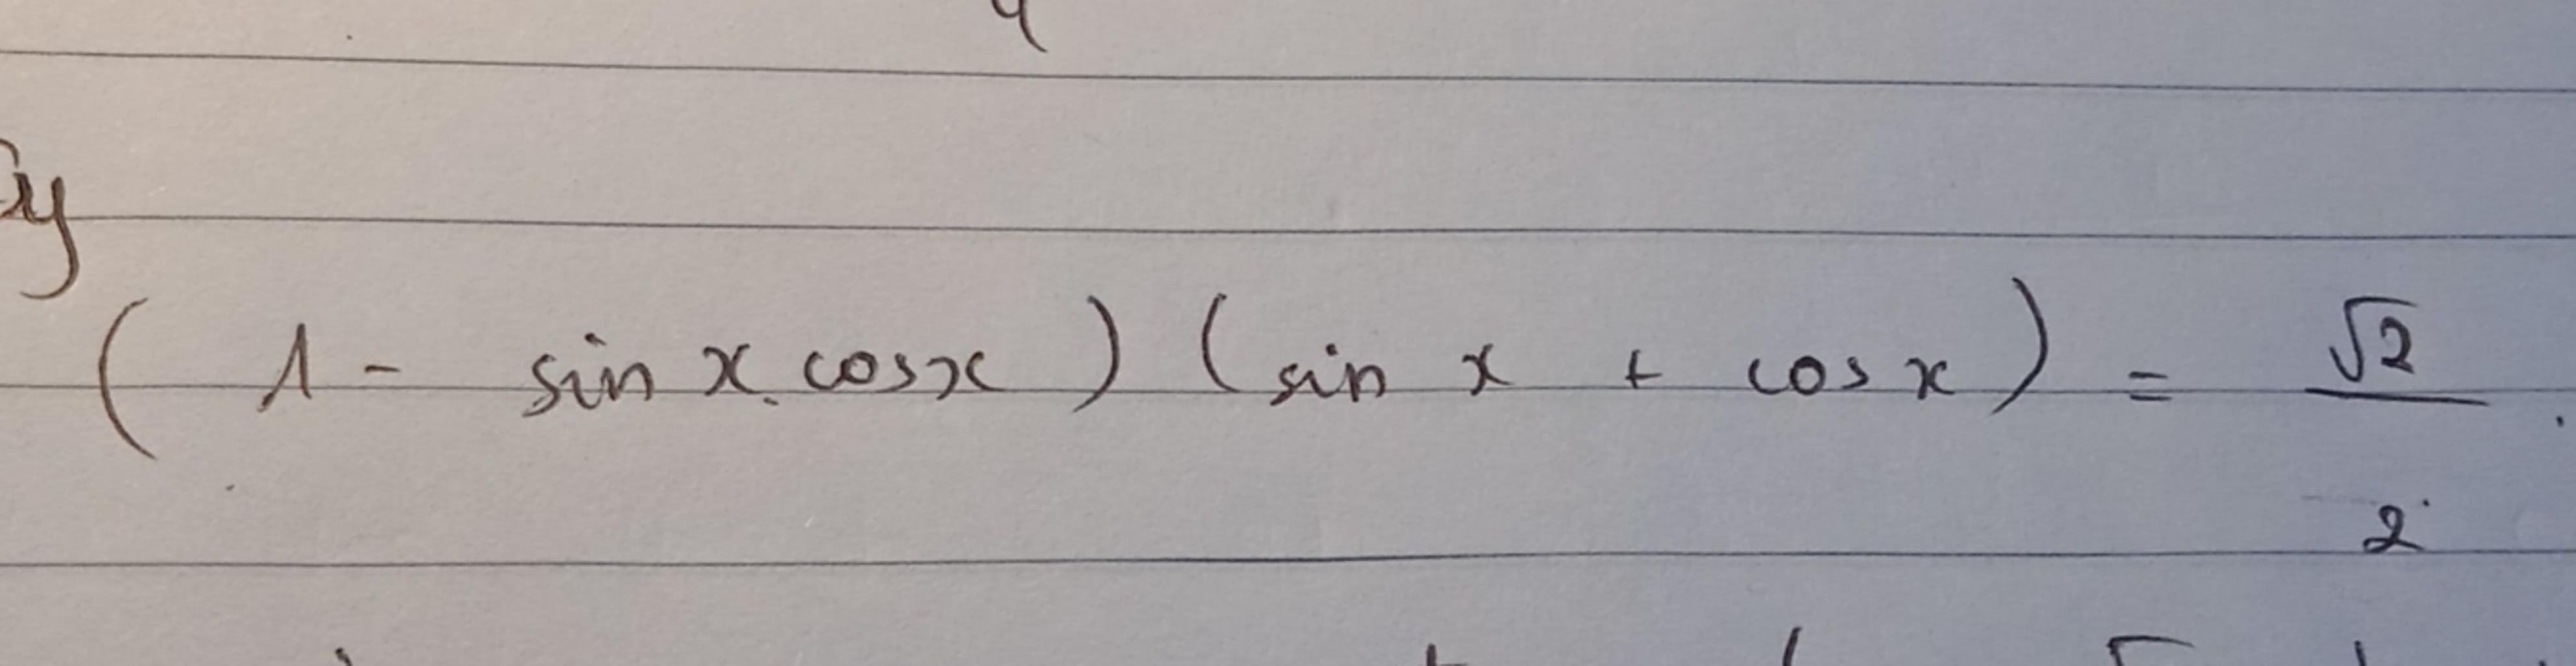 y
( 1 - sin x . cos x ) ( sin x + cos x ) = √2 / 2 .